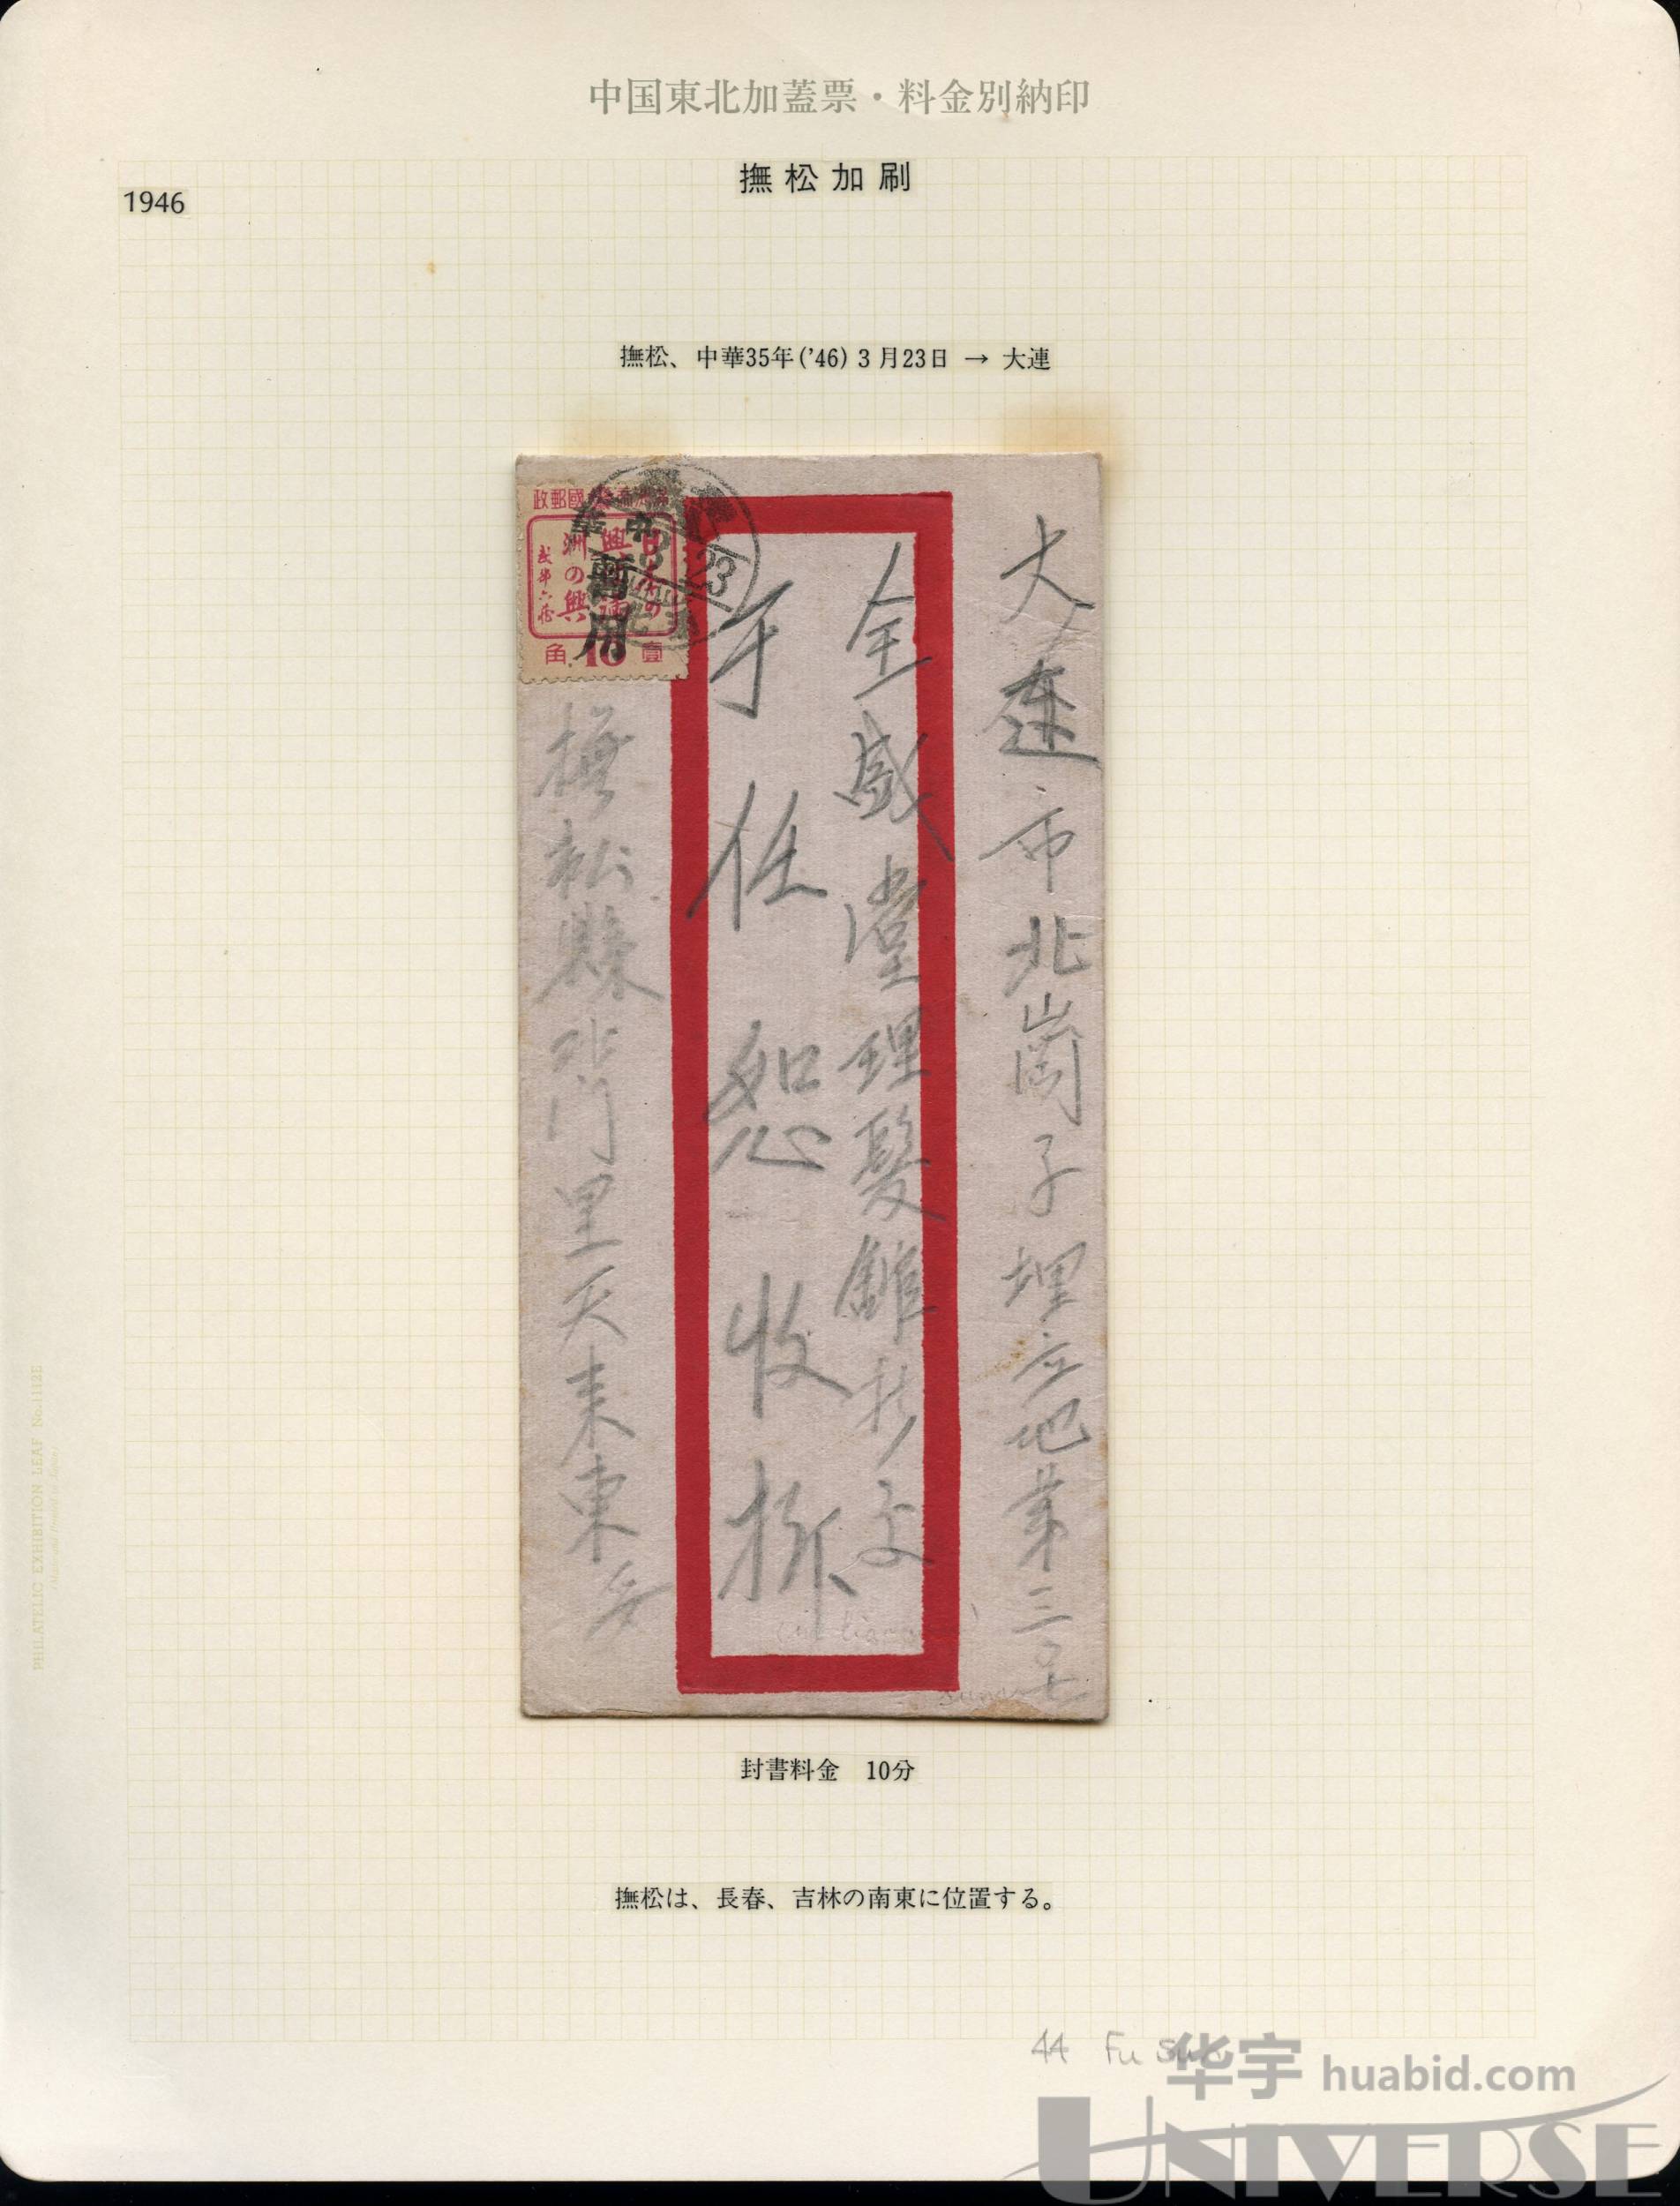 中国東北加蓋票・料金別納印
撫松加刷
1946
撫松、中華35年('46) 3月23日 → 大連
大連市北崗子埋立地第三〇七
金盛堂理髮館 交
于任恕收拆
撫松縣北門里 東
暫用
23
角 10 壹
封書料金 10分
撫松は、長春、吉林の南東に位置する。
PHILATELIC EXHIBITION LEAF No.1112E
44 Fu Sun
华宇 huabid.com
UNIVERSE